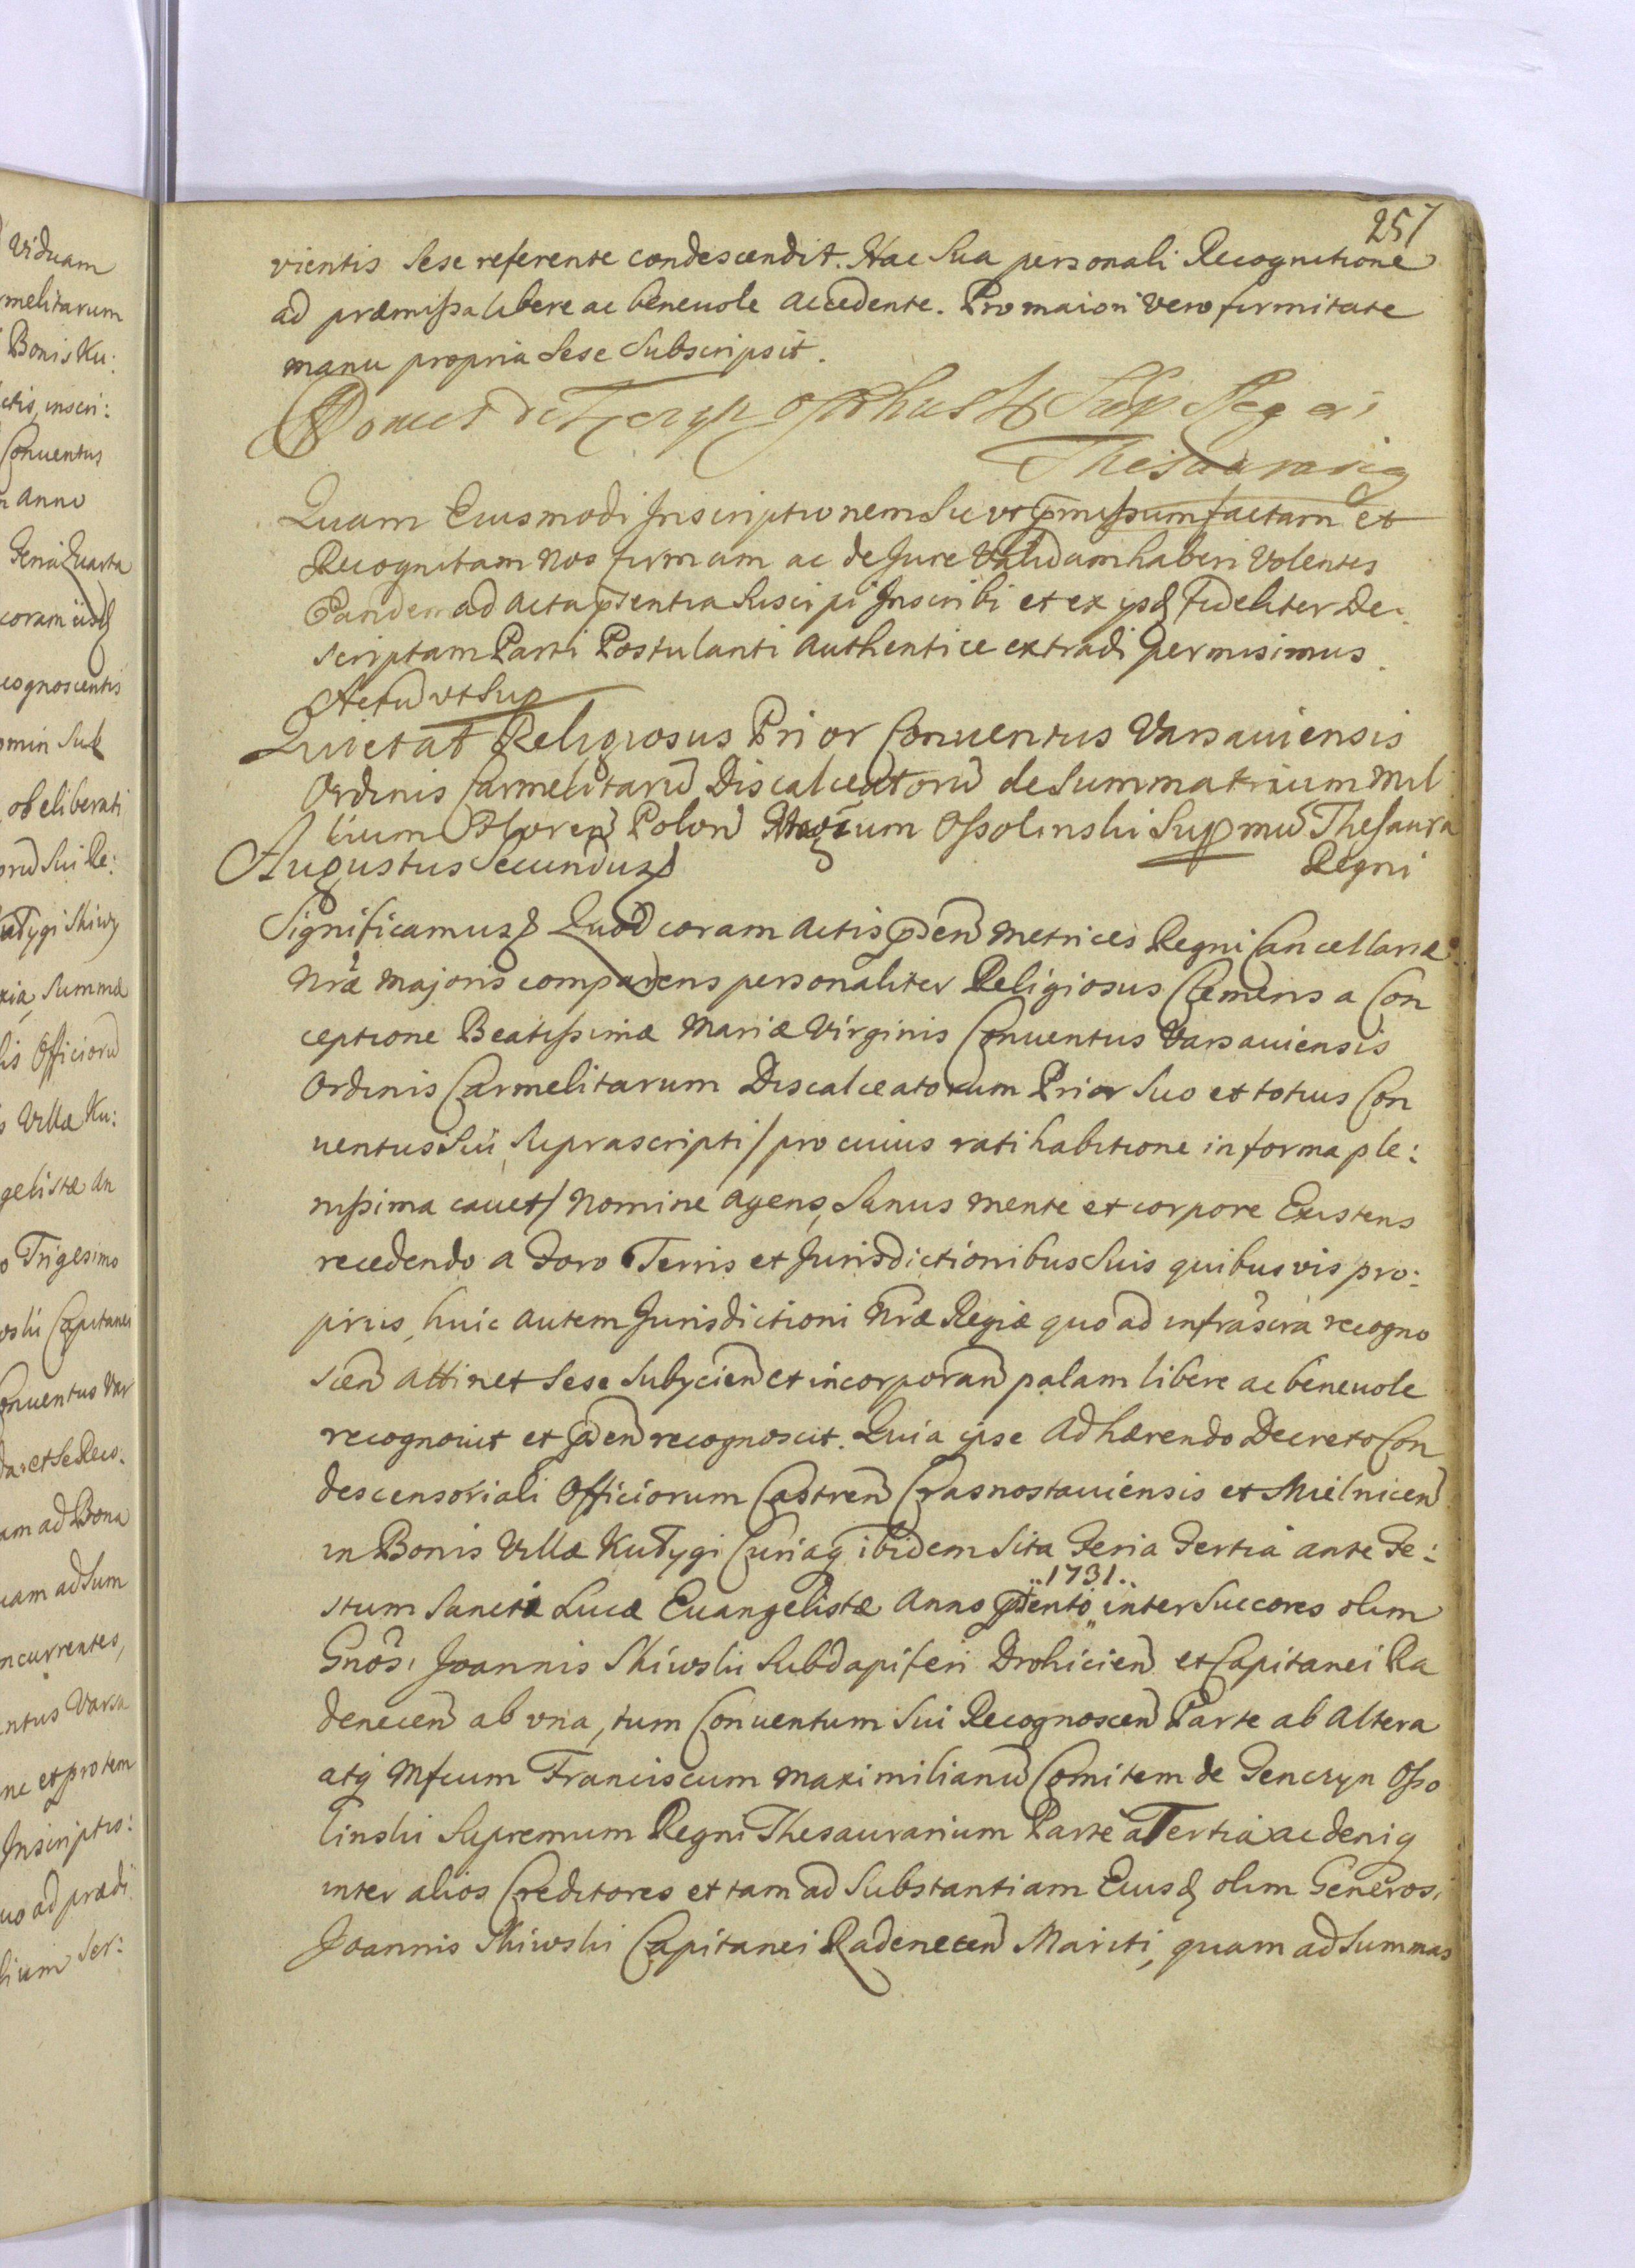 257
vientis Sese referente condescendit. Hac Sua personali Recognitione
ad præmissa libere ac beneuole accedente. Pro maiori vero firmitate
manu propria Sese Subscripsit.
Comes de Tęczyn Ossolinski Sup Regni
Thesaurariq
Quam Eiusmodi Inscriptionem Sic vt pmissum factam et
Recognitam nos firmam ac de Jure Validam haberi Volentes
Eandem ad acta psentia Suscipi Inscribi et ex ijsd fideliter De:
scriptam Parti Postulanti authentice extradi permisimus.
Actu vt Sup
Quietat Religiosus Prior Conuentus Varsauiensis
Ordinis Carmelitaru Discalceatoru de Summa trium mil
lium Floren Polon Mgcum Ossolinski Supmu Thesaura
Regni
Augustus Secundus
Significamus Quod coram actis psen metrices Regni Cancellariæ
nræ majoris comparens personaliter Religiosus Clemens a Con
ceptione Beatissimæ Mariæ Virginis Conuentus Varsauiensis
Ordinis Carmelitarum Discalceatorum Prior Suo et totius Con
uentus Sui Suprascripti / pro cuius ratihabitione in forma ple:
nissima cauet / Nomine agens, Sanus mente et corpore Existens
recedendo a Foro Terris et Jurisdictionibus Suis quibusvis pro:
prijs, huic autem Jurisdictioni Nræ Regiæ quo ad infrascra recogno
scen attinet Sese Subijcien et incorporan palam libere ac beneuole
recognouit et psen recognoscit. Quia ipse Adhærendo Decreto Con
descensoriali Officiorum Castren Crasnostauiensis et Mielnicen
in Bonis Villæ Kutygi Curiaq ibidem Sita Feria Tertia ante Fe:
..1731..
stum Sancti Lucæ Euangelistæ Anno psenti inter Succores olim
Gnosi Joannis Skiwski Subdapiferi Drohicien et Capitanei Ra
denecen ab vna, tum Conuentum Sui Recognoscen Parte ab Altera
atq Mfcum Franciscum Maximilianu Comitem de Tenczyn Osso
linski Supremum Regni Thesaurarium Parte a Tertia ac deniq
inter alios Creditores et tam ad Substantiam Eiusd olim Generosi
Joannis Skiwski Capitanei Radenecen Mariti, quam ad Summas